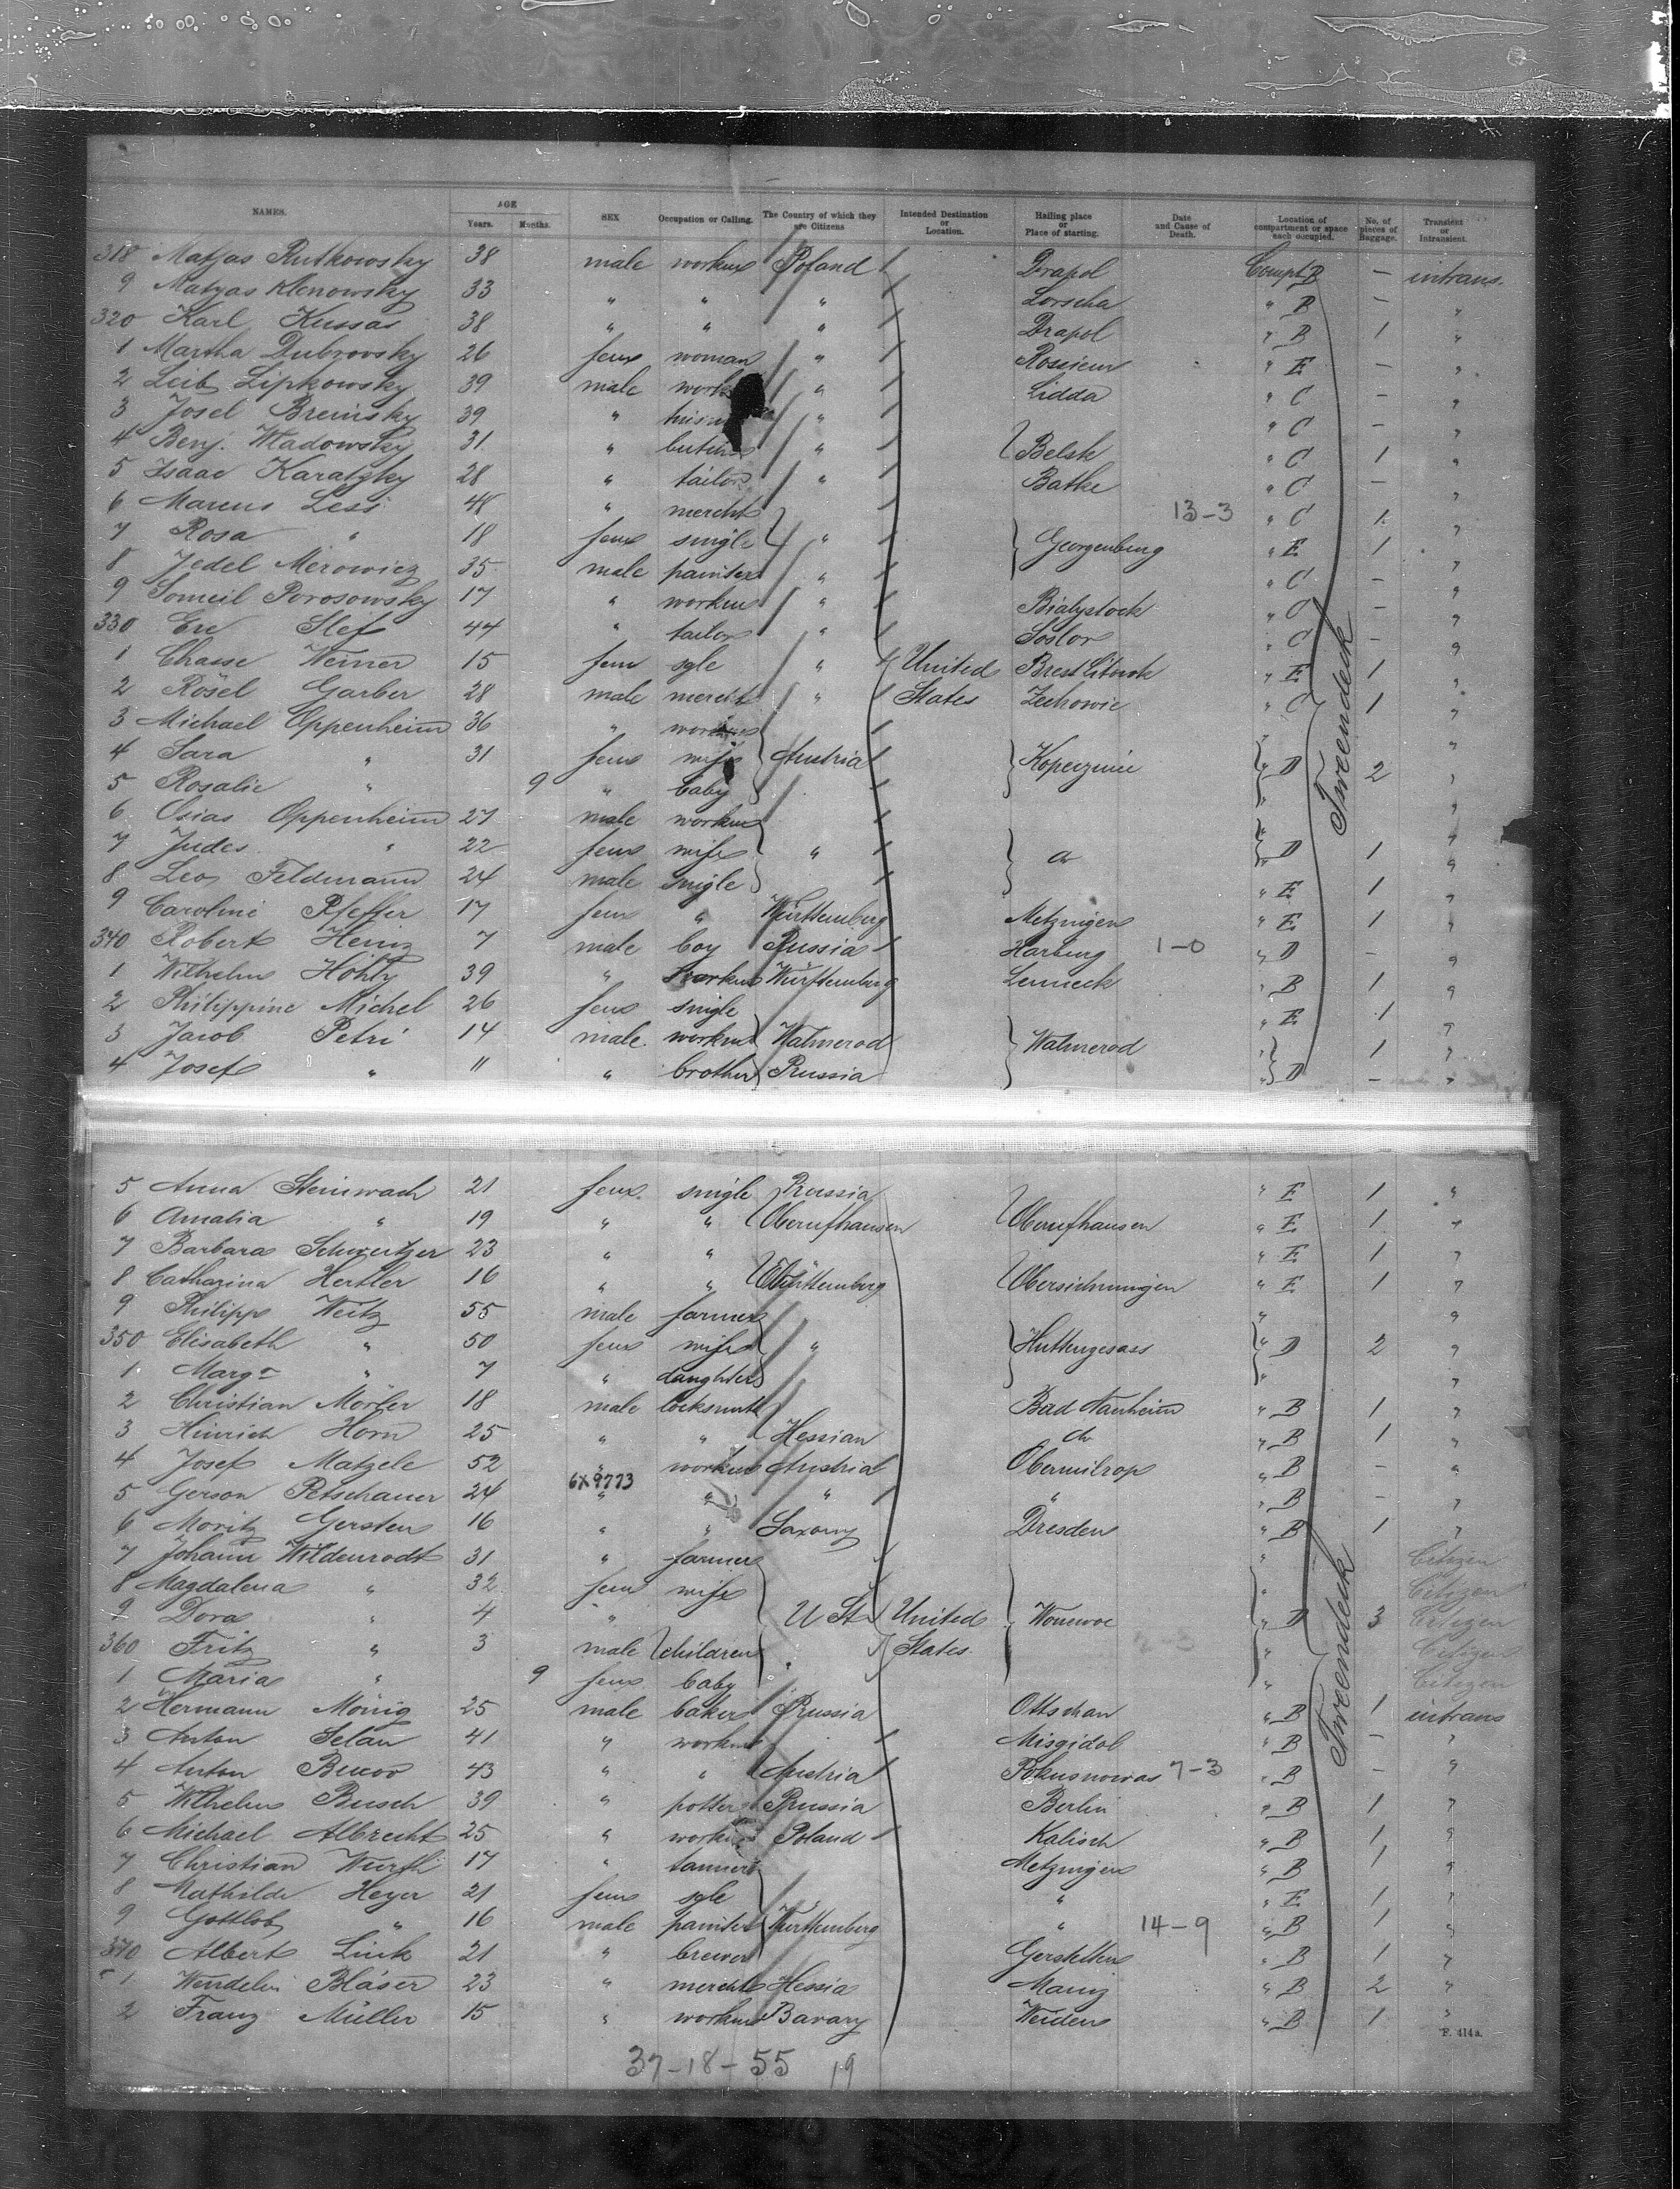 NAMES. AGE Years. Months. SEX Occupation or Calling. The Country of which they are Citizens Intended Destination or Location. Hailing place or Place of starting. Date and Cause of Death. Location of compartment or space each occupied. No. of pieces of Baggage. Transient or Intransient.
318 Matyas Rutkowsky 38 male worker Poland Drapol Compt B — intrans.
9 Matyas Klenowsky 33 " " " Lorscha " B — "
320 Karl Kussas 38 " " " Drapol " B 1 "
1 Martha Dubrovsky 26 fem woman " Rossien " E — "
2 Leib Lipkowsky 39 male work " Lidda " C — "
3 Josel Breinsky 39 " " " C — "
4 Benj. Wladowsky 31 " butcher " Belsk " C 1 "
5 Isaac Karatzky 28 " tailor " Batke " C — "
6 Marcus Less 48 " mercht 13-3 " C 1 "
7 Rosa " 18 fem single " Georgenburg " E 1 "
8 Jedel Merowicz 35 male painter " " C — "
9 Someil Porosowsky 17 " worker " Bialystock " C — "
330 Ere Slef 44 " tailor " Soslov " C — "
1 Chasse Weiner 15 fem sgle " United Brest Litowk " E 1 "
2 Rösel Garber 28 male mercht " States Zechowic " C 1 "
3 Michael Oppenheim 36 " worker "
4 Sara " 31 fem wife Austria " D 2 "
5 Rosalie " 9 " baby " "
6 Osias Oppenheim 27 male worker "
7 Judes " 22 fem wife " do " D 1 "
8 Leo Feldmann 24 male single " E 1 "
9 Caroline Pfeffer 17 fem " Württemberg Metzingen " E 1 "
340 Robert Heinz 7 male boy Prussia Harburg 1-0 " D — "
1 Wilhelm Höhly 39 " worker Württemberg Lenneck " B 1 "
2 Philippine Michel 26 fem single " E 1 "
3 Jacob Petri 14 male worker Walmerod Walmerod " 1 "
4 Josef " 11 " brother Prussia " D — "
5 Anna Steinwach 21 fem single Prussia " E 1 "
6 Amalia " 19 " " Oberufhausen Oberufhausen " E 1 "
7 Barbara Schweitzer 23 " " " E 1 "
8 Catharina Hertler 16 " " Württemberg " E 1 "
9 Philipp Weitz 55 male farmer " "
350 Elisabeth " 50 fem wife " Huttengesass " D 2 "
1 Margr " 7 " daughter " "
2 Christian Mörler 18 male locksmith Bad Nauheim " B 1 "
3 Hinrich Horn 25 " " Hessian do " B 1 "
4 Josef Matzele 52 " worker Austria " B — "
5 Gerson Petschauer 24 6X9773 " " " " " B — "
6 Moritz Gersten 16 " " Saxony Dresden " B 1 "
7 Johann Wildenrodt 31 " farmer " Citizen
8 Magdalena " 32 fem wife " Citizen
9 Dora " 4 " U St United " D 3 Citizen
360 Fritz " 3 male children States " Citizen
1 Maria " 9 fem baby " Citizen
2 Hermann Mönig 25 male baker Prussia Ottschan " B 1 intrans
3 Anton Selan 41 " worker Misgidol " B — "
4 Anton Bucov 43 " " Austria 7-3 " B — "
5 Wilhelm Busch 39 " potter Prussia Berlin " B 1 "
6 Michael Albrecht 25 " worker Poland Kalisch " B 1 "
7 Christian Wurfli 17 " tanner Metzingen " B 1 "
8 Mathilde Heyer 21 fem sgle " " E 1 "
9 Gottlob " 16 male painter Württemberg " 14-9 " B 1 "
370 Albert Link 21 " brewer Gerstetten " B 1 "
1 Wendelin Bläser 23 " mercht Hessia Mainz " B 2 "
2 Franz Müller 15 " worker Bavary Weiden " B 1 "
Tweendeck
Tweendeck
F. 414a.
37-18-55 19